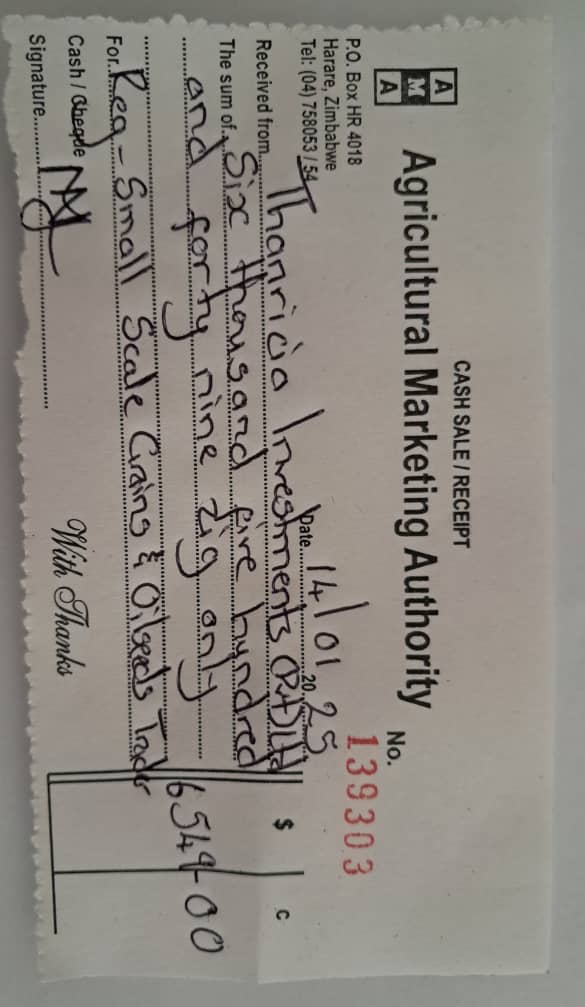 CASH SALE / RECEIPT
A M A
Agricultural Marketing Authority
P.O. Box HR 4018
Harare, Zimbabwe
Tel: (04) 758053 / 54
No. 139303
Date 14/01 2025
Received from Thanricia Investments (Pvt) Ltd
The sum of Six thousand five hundred
and forty nine zig only
$ c
6549-00
For Reg - Small Scale Grains & Oilseeds Trader
Cash / Cheque
Signature
With Thanks